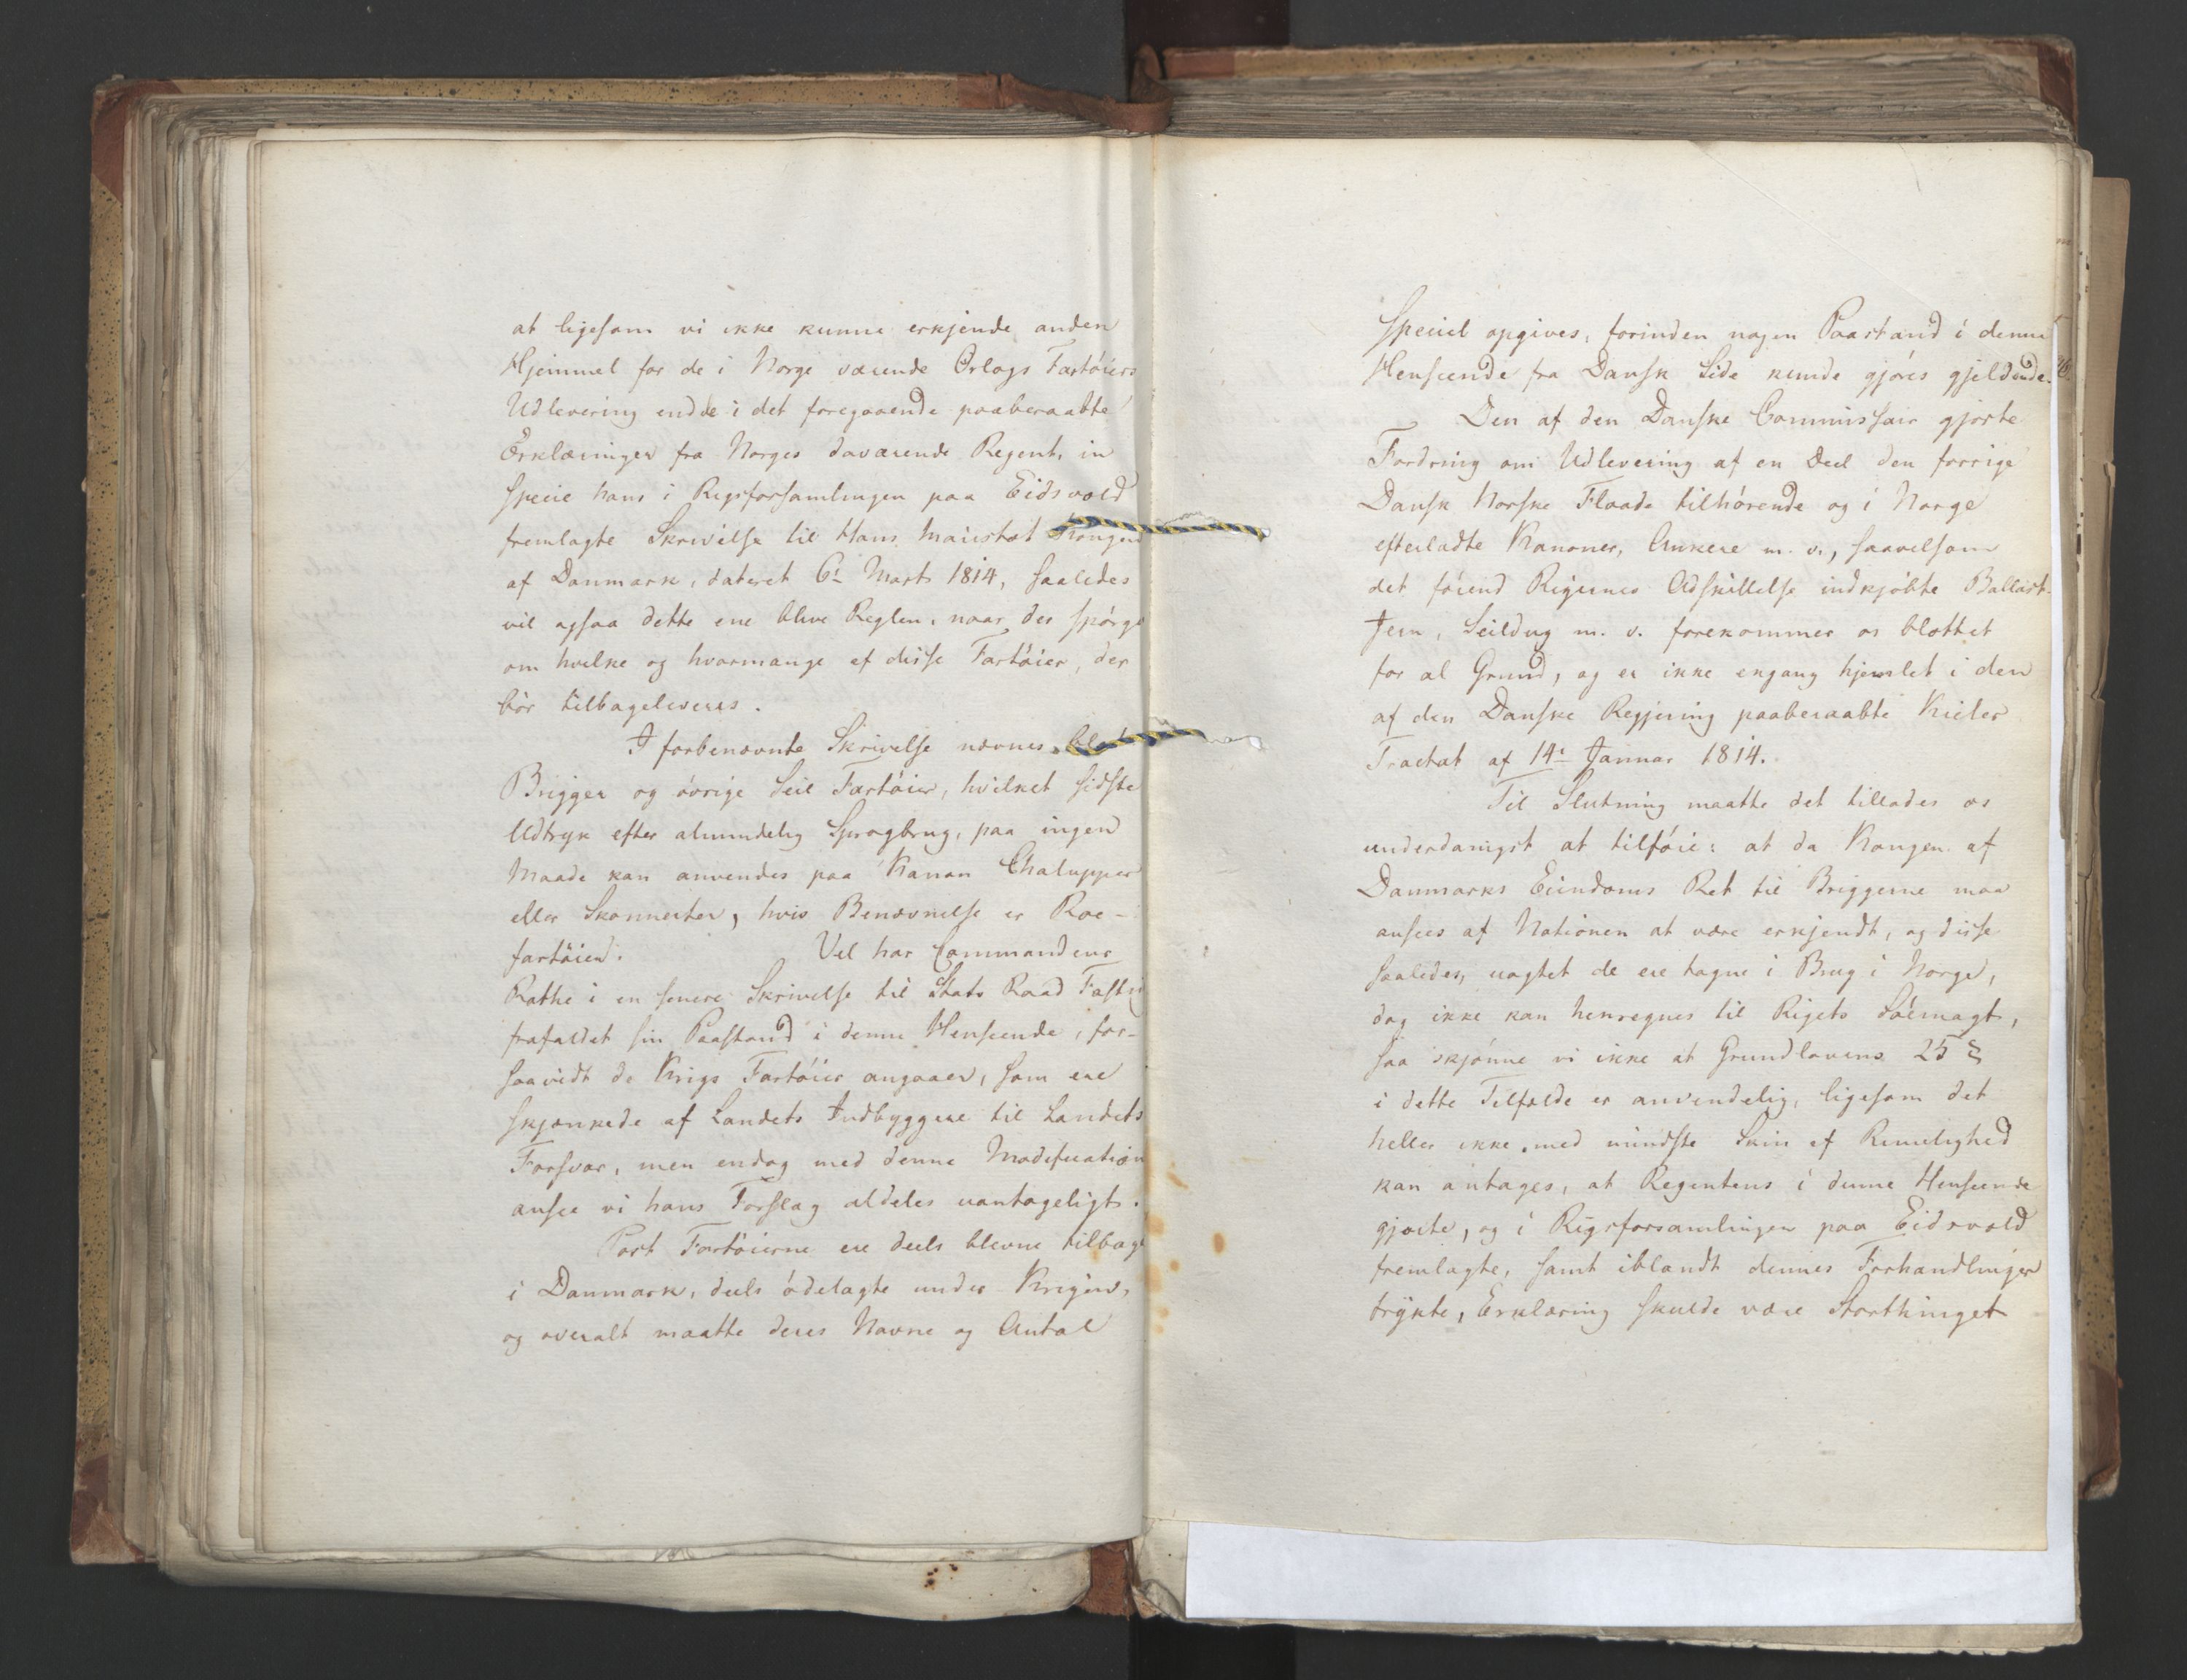 at ligesom vi ikke kunne erkjende anden
Hjemmel for de i Norge værende Orlogs Fartöiers
Udlevering endde i det foregaaende paaberaabte
Erklæringer fra Norges daværende Regent, in
specie hans i Rigsforsamlingen paa Eidsvold
fremlagte Skrivelse til Hans Maiestæt Kongen
af Danmark, dateret 6te Marts 1814, saaledes
vil ogsaa dette ene blive Reglen, naar der spörges
om hvilke og hvormange af disse Fartöier, der
bör tilbageleveres.
I forbenævnte Skrivelse nævnes blot
Brigger og övrige Seil Fartöier, hvilket sidste
Udtryk efter almindelig Sprogbrug, paa ingen
Maade kan anvendes paa Kanon Chalupper
eller Skonnerter, hvis Benævnelse er Roe-
fartöier. Vel har Commandeur
Rothe i en senere Skrivelse til Stats Raad Fasting
frafaldet sin Paastand i denne Henseende, for-
saavidt de Krigs Fartöier angaaer, som ere
skjænkede af Landets Indbyggere til Landets
Forsvar, men endog med denne Modification
ansee vi hans Forslag aldeles uantageligt.
Post Fartöierne ere deels blevne tilbage
i Danmark, deels ödelagte under Krigen,
og overalt maatte deres Navne og Antal
speciel opgives, forinden nogen Paastand i denne
Henseende fra Dansk Side kunde gjöres gjeldende.
Den af den Danske Commissair gjorte
Fordring om Udlevering af en Deel den forrige
Dansk Norske Flaade tilhörende og i Norge
efterladte Kanoner, Ankere m. v., saavelsom
det förend Rigernes Adskillelse indkjöbte Ballast-
Jern, Seildug m. v. forekommer os blottet
for al Grund, og er ikke engang hjemlet i den
af den Danske Regjering paaberaabte Kieler
Tractat af 14de Januar 1814.
Til Slutning maatte det tillades os
underdanigst at tilföie: at da Kongen af
Danmarks Eiendoms Ret til Briggerne maa
ansees af Nationen at være erkjendt, og disse
saaledes, uagtet de ere tagne i Brug i Norge,
dog ikke kan henregnes til Rigets Söemagt,
saa skjönne vi ikke at Grundlovens 25 §
i dette Tilfælde er anvendelig, ligesom det
heller ikke med mindste Skin af Rimelighed
kan antages, at Regentens i denne Henseende
gjorte, og i Rigsforsamlingen paa Eidsvold
fremlagte, samt iblandt dennes Forhandlinger
trykte, Erklæring skulde være Storthinget